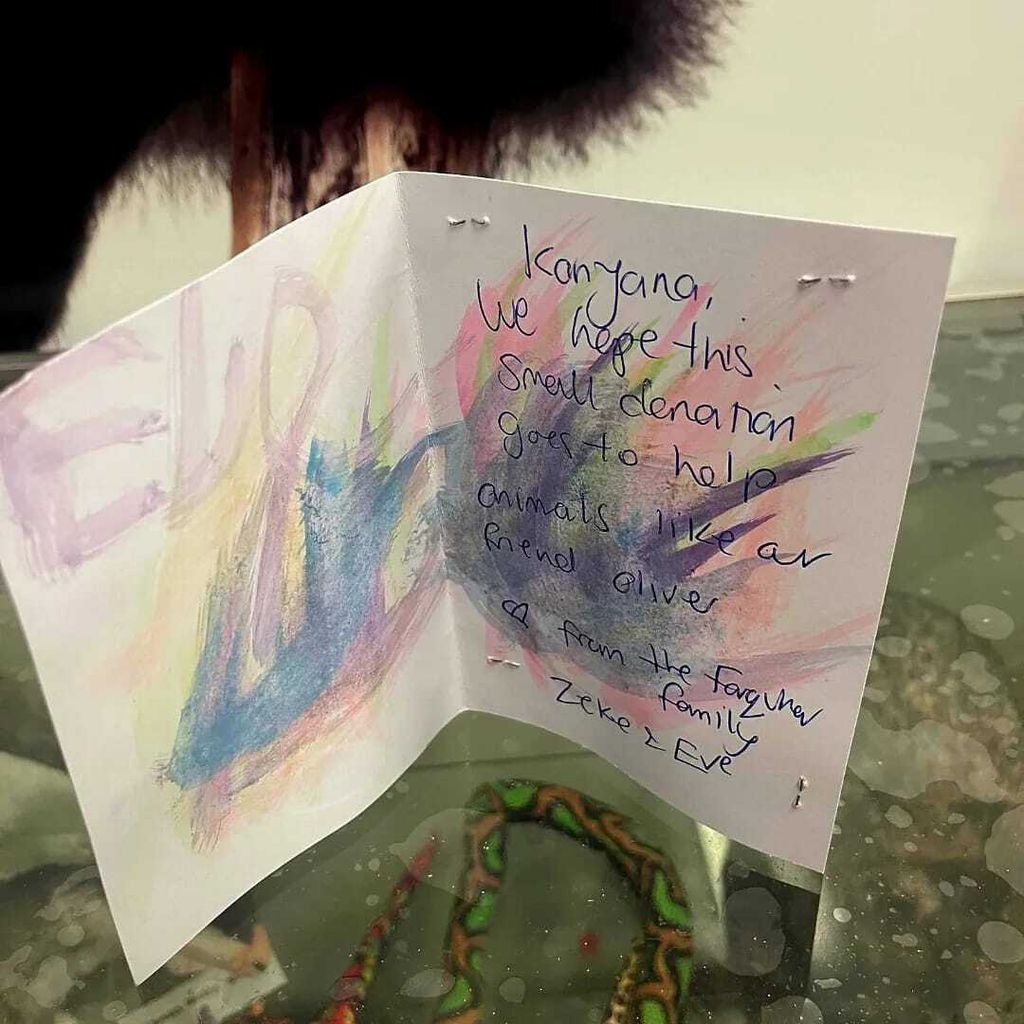 EVE
Kanyana,
We hope this
Small donation
goes to help
animals like our
friend Oliver
♡ from the Farquhar
family
Zeke & Eve